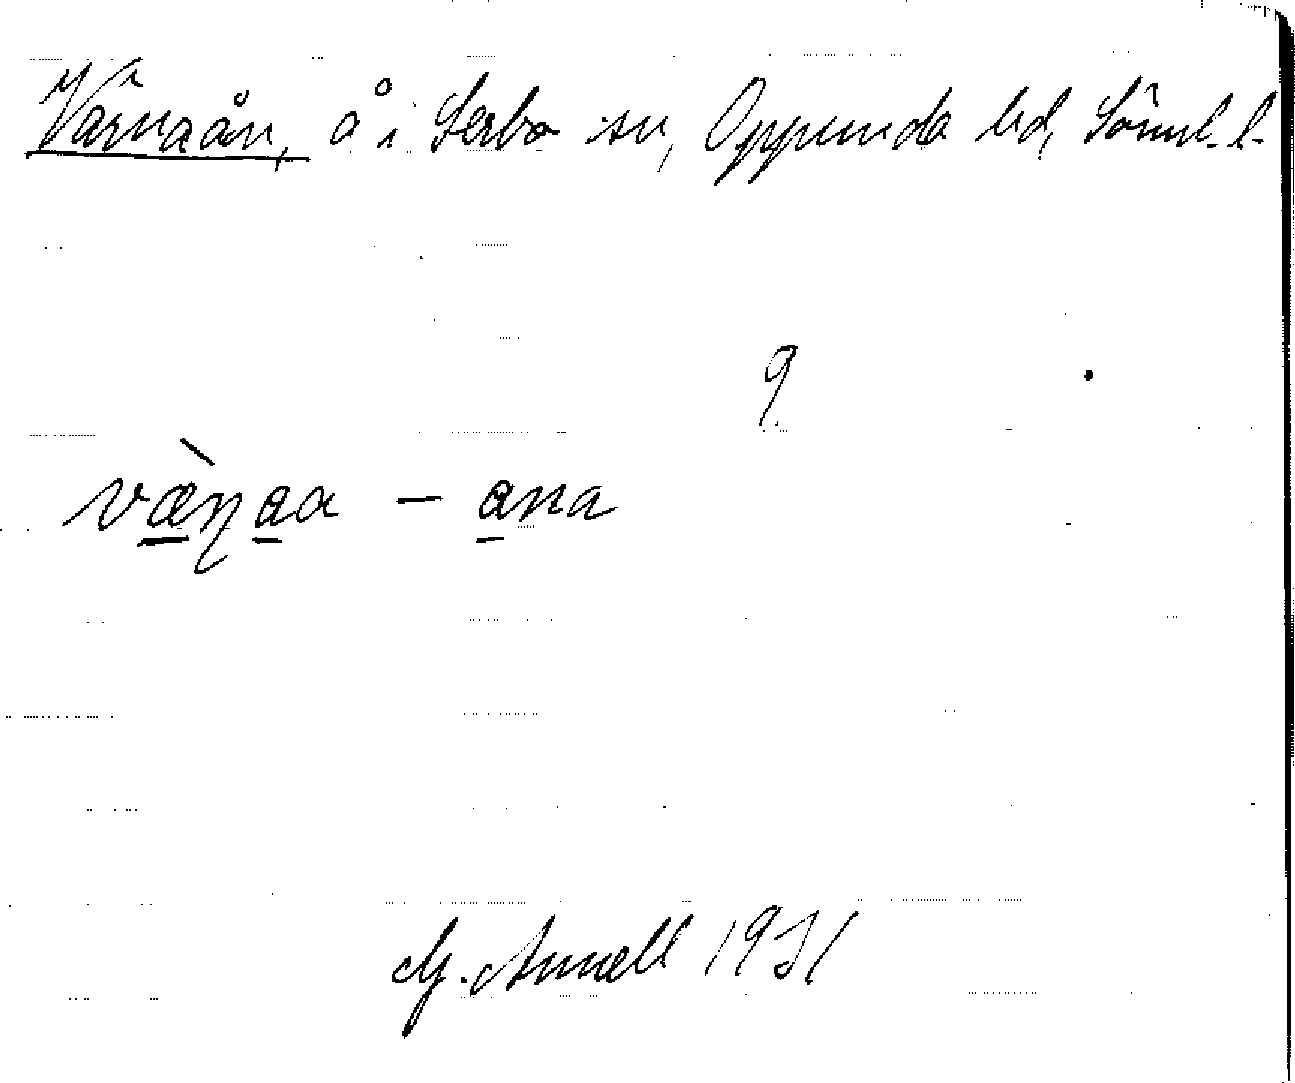 Värnaån, å i Lerbo sn, Oppunda hd, Söml. l.
9
væ̀ŋaa – ana
G. Annell 1931